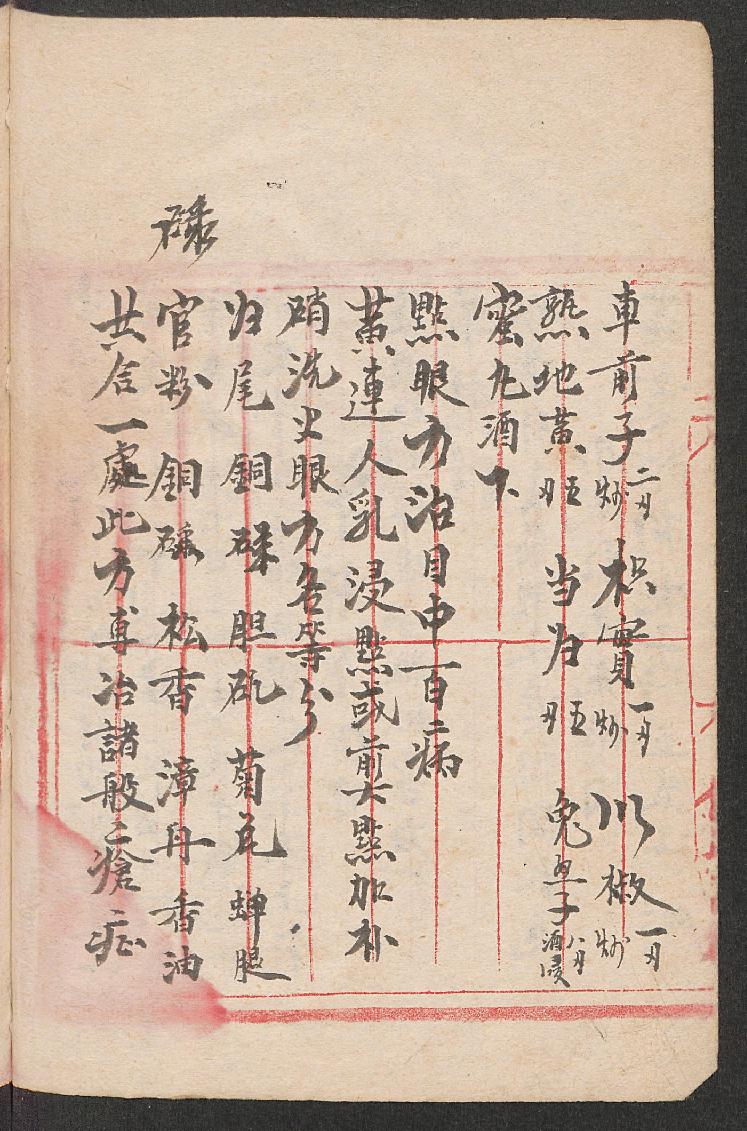 車前子二刃炒 枳實一刃炒 川椒一刃炒
熟地黄五刃 当归五刃 兔絲子八刃酒浸
蜜丸酒下
點眼方治目中百二病
黄連人乳浸點或煎火點加朴
硝洗火眼方各等分
归尾 銅碌 胆矾 菊花 蝉腿
官粉 銅碌 松香 漳丹 香油
共合一處此方專治諸般之瘡症
碌